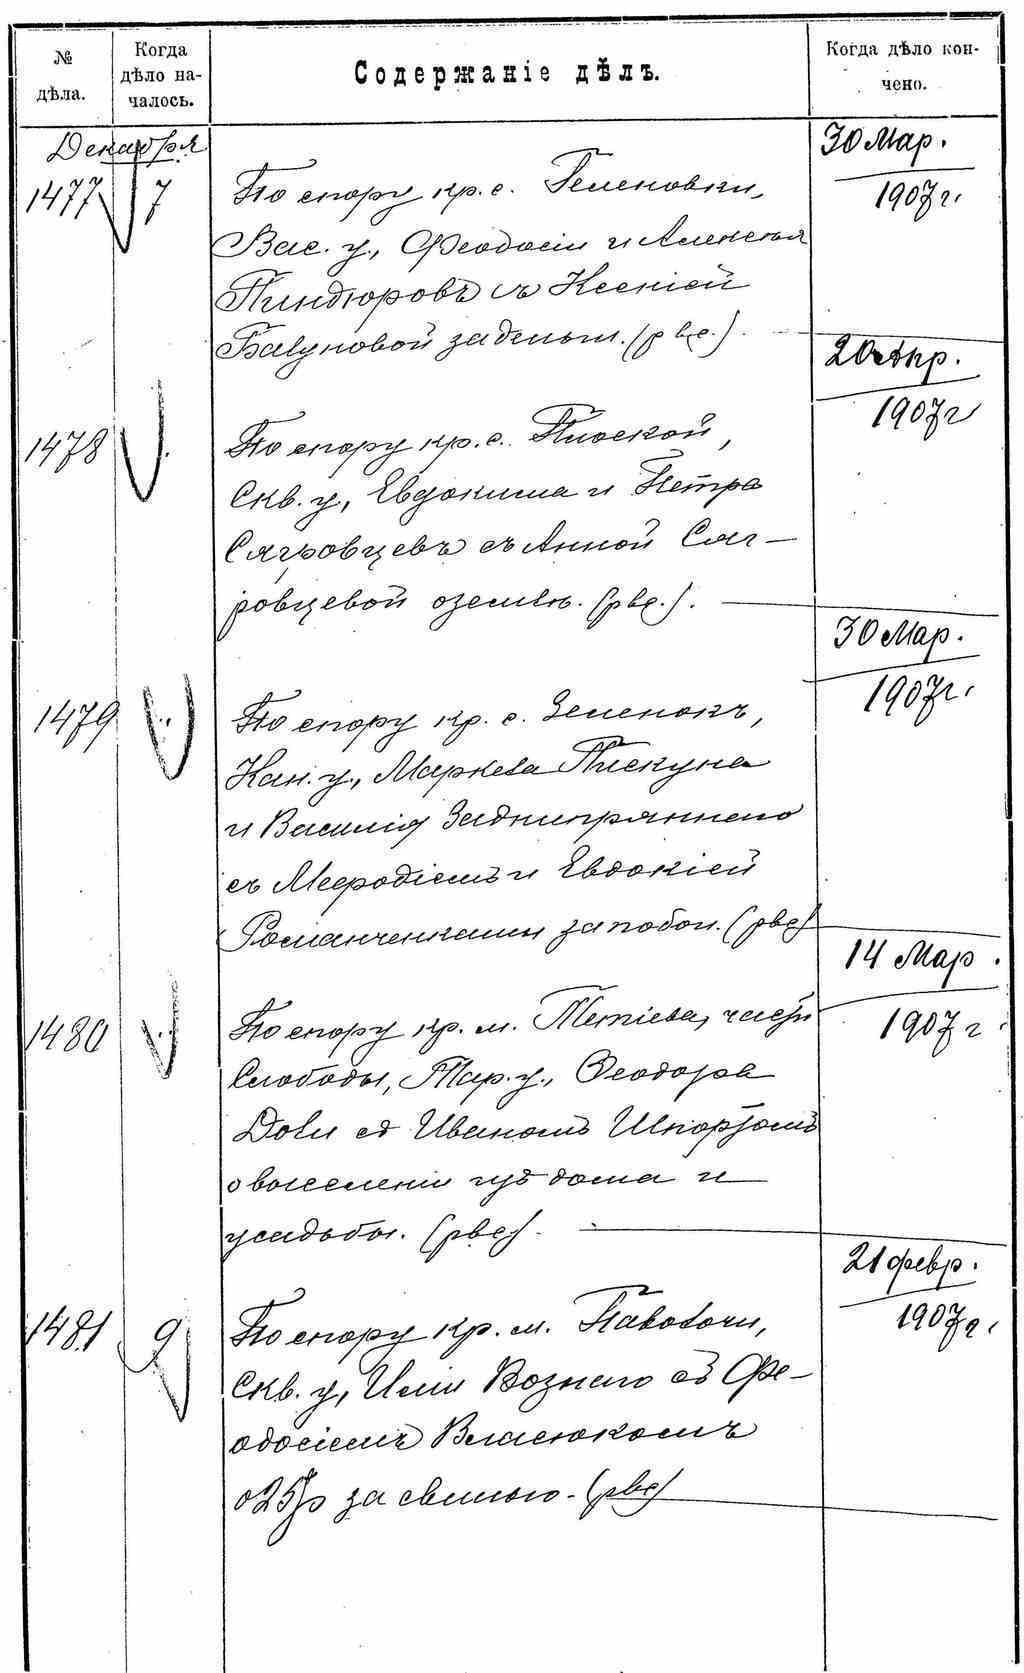 № дѣла.
Когда дѣло на-
чалось.
Содержаніе дѣлъ.
Когда дѣло кон-
чено.
Декабря
30 Мар.
1907 г.
1477 7 По спору кр. с. Геленовки,
Вас. у., Феодосіи и Алексѣя
Пиндюровъ съ Ксеніей
Багуновой за деньги. (рвс.).
20 Апр.
1907 г
1478 По спору кр. с. Плоской,
Скв. у., Евдокима и Петра
Сягровцевъ съ Анной Сяг-
ровцевой о землѣ. (рвс.).
30 Мар.
1907 г.
1479 По спору кр. с. Зеленокъ,
Кан. у., Маркела Пискуна
и Василія Заднипряннаго
съ Меѳодіемъ и Евдокіей
Романченками за побои. (рвс)
14 Мар.
1907 г.
1480 По спору кр. м. Тетіева, части
Слободы, Тар. у., Ѳеодора
съ Иваномъ
о выселеніи изъ дома и
усадьбы. (рвс).
21 февр.
1907 г.
1481 9 По спору кр. м. Паволочи,
Скв. у., Иліи Вознаго съ Фе-
одосіемъ Власюкомъ
о 25 р за свинью. (рвс)